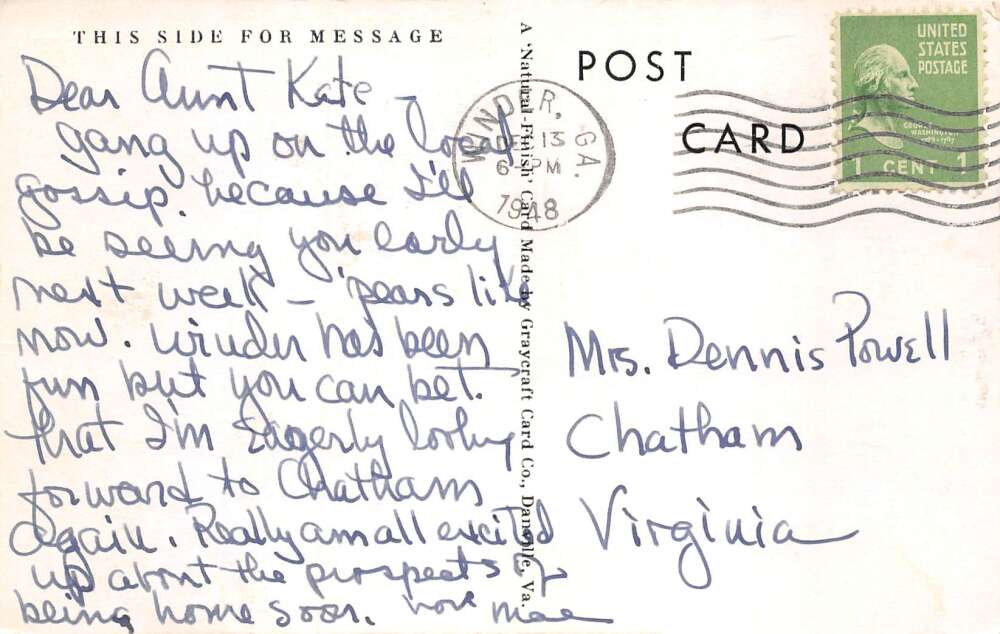 THIS SIDE FOR MESSAGE
Dear Aunt Kate -
gang up on the local
gossip, because I'll
be seeing you early
next week - 'pears like
now. Winder has been
fun but you can bet
that I'm Eagerly looking
forward to Chatham
again. Really am all excited
up about the prospects of
being home soon. Mae
A 'Natural-Finish' Card Made by Graycraft Card Co., Danville, Va.
POST
CARD
WINDER, GA.
13
6-PM
1948
UNITED
STATES
POSTAGE
GEORGE
WASHINGTON
1 CENT 1
Mrs. Dennis Powell
Chatham
Virginia